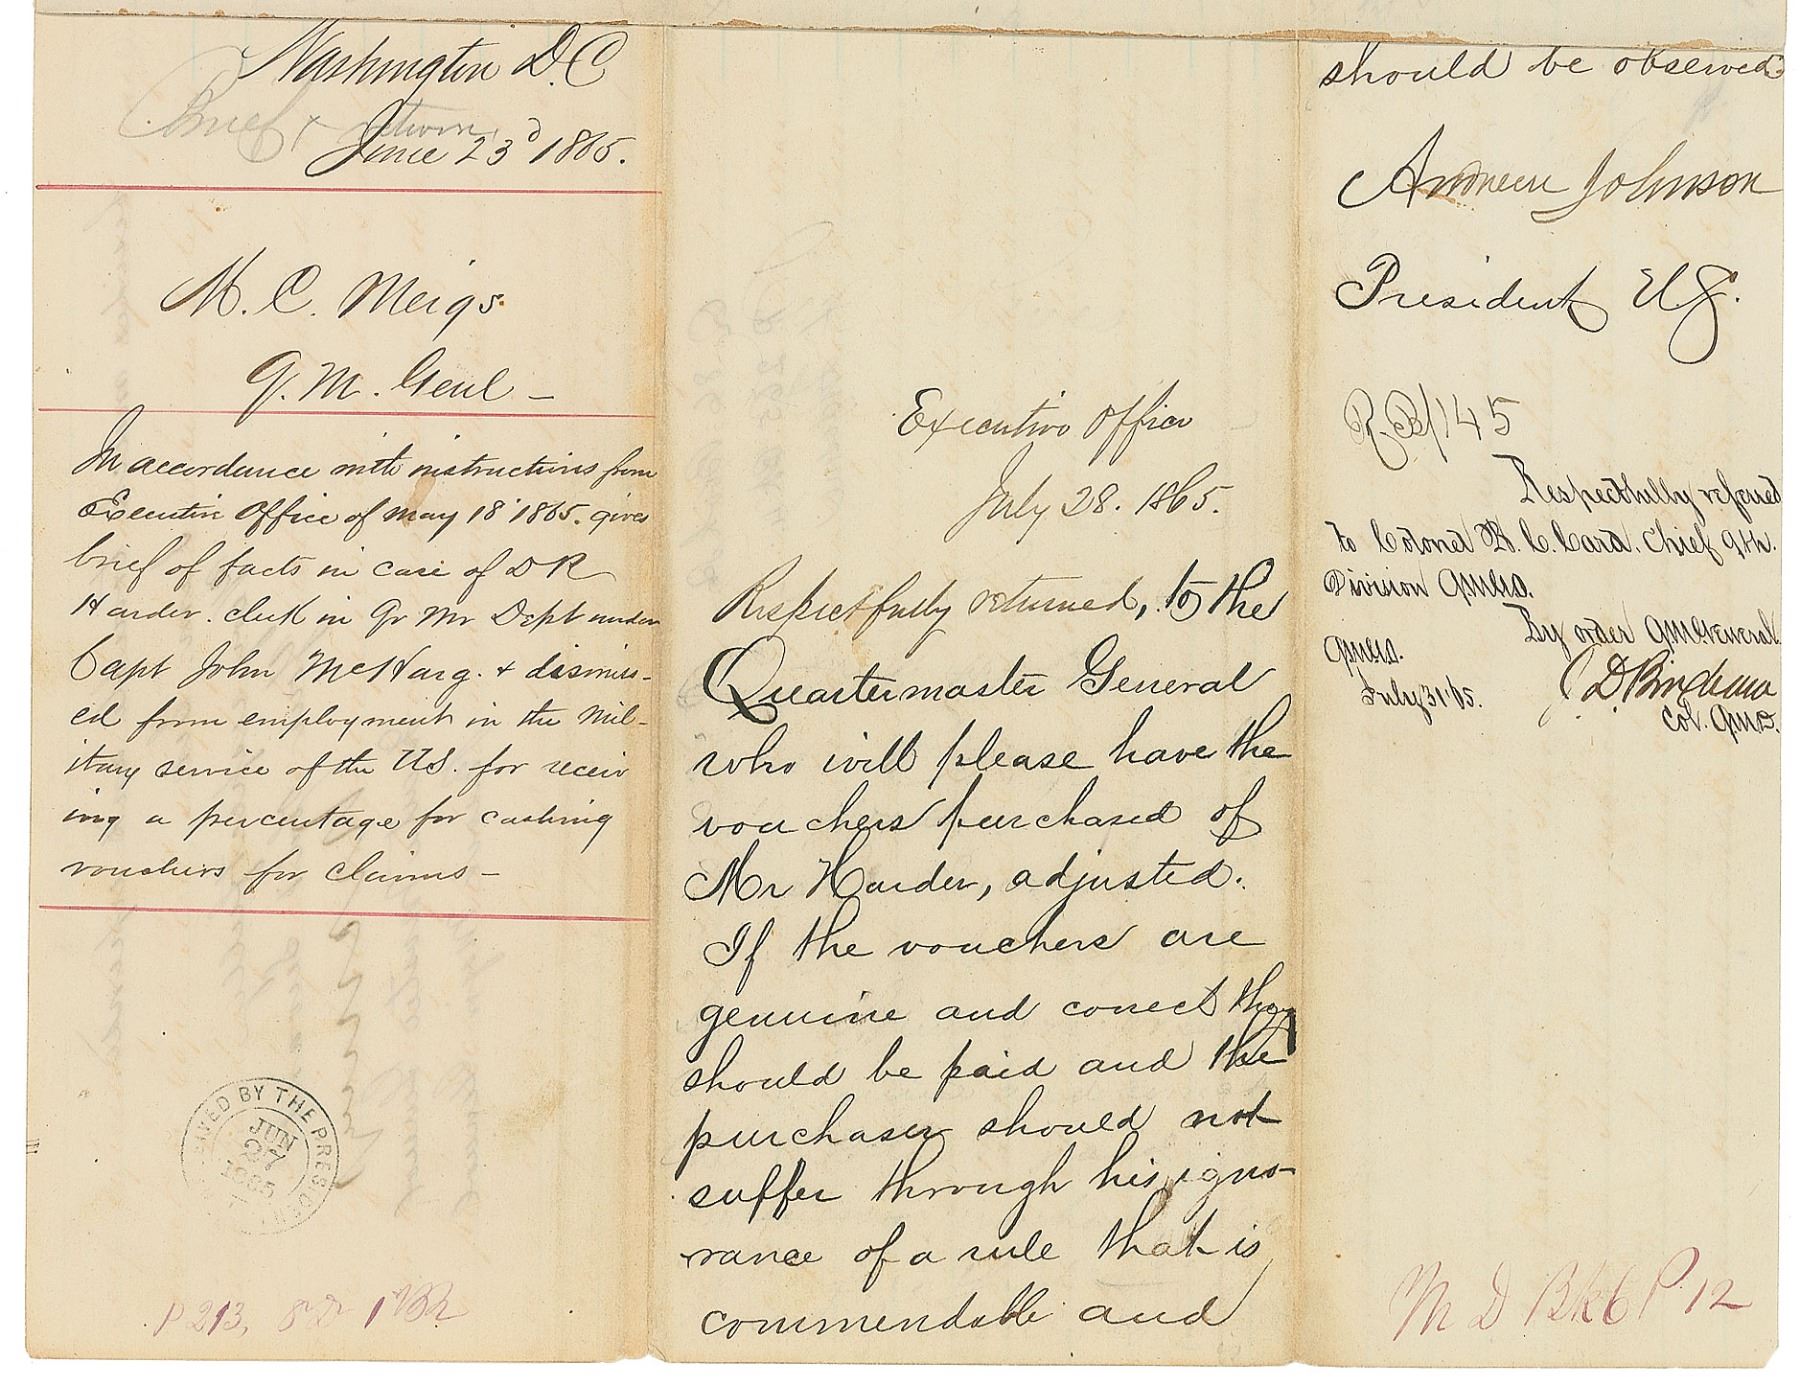 Washington D.C
Brief & return
June 23d 1865.
M. C. Meigs
Q. M. Genl –
In accordance with instructions from
Executive Office of May 18' 1865. gives
brief of facts in case of D R
Harder. clerk in Qr Mr Dept under
Capt John McHarg. & dismiss-
ed from employment in the mil-
itary service of the U.S. for receiv
ing a percentage for cashing
vouchers for claims –
BY THE PRESIDENT
JUN
27
1865
P 213,
Executive Office
July 28. 1865.
Respectfully returned, to the
Quartermaster General
who will please have the
vouchers purchased of
Mr Harder, adjusted.
If the vouchers are
genuine and correct they
should be paid and the
purchaser should not
suffer through his igno-
rance of a rule that is
commendable and
should be observed.
Andrew Johnson
President U.S.
R.B/145
Respectfully referred
to Colonel B. C. Card. Chief 9th.
Division QMGO.
By order QMGeneral.
QMGO.
July 31. 65.
J D Bingham
Col. QMD.
M D Bk 6 P. 12